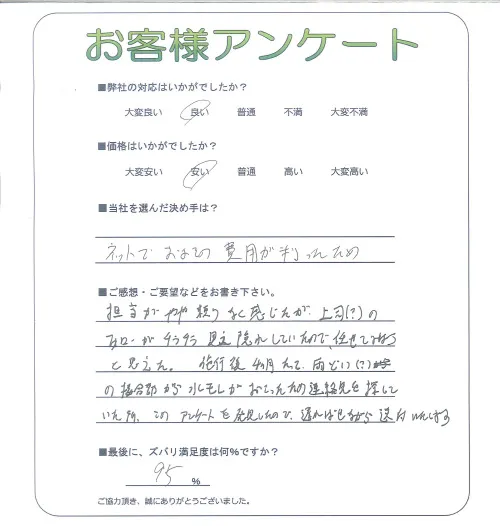 お客様アンケート
■弊社の対応はいかがでしたか？
大変良い 良い 普通 不満 大変不満
■価格はいかがでしたか？
大変安い 安い 普通 高い 大変高い
■当社を選んだ決め手は？
ネットで おおよその 費用が判ったため
■ご感想・ご要望などをお書き下さい。
担当が やや 頼りなく感じたが、上司(?)の
フォローが チラチラ 見え隠れしていたので、任せてみよう
と思えた。 施行後 4ヶ月 たって、雨どい(?)
の接合部から水もれがおこったため連絡先を探して
いた所、この アンケートを発見したので、遅ればせながら 送付いたします
■最後に、ズバリ満足度は何％ですか？
95 %
ご協力頂き、誠にありがとうございました。